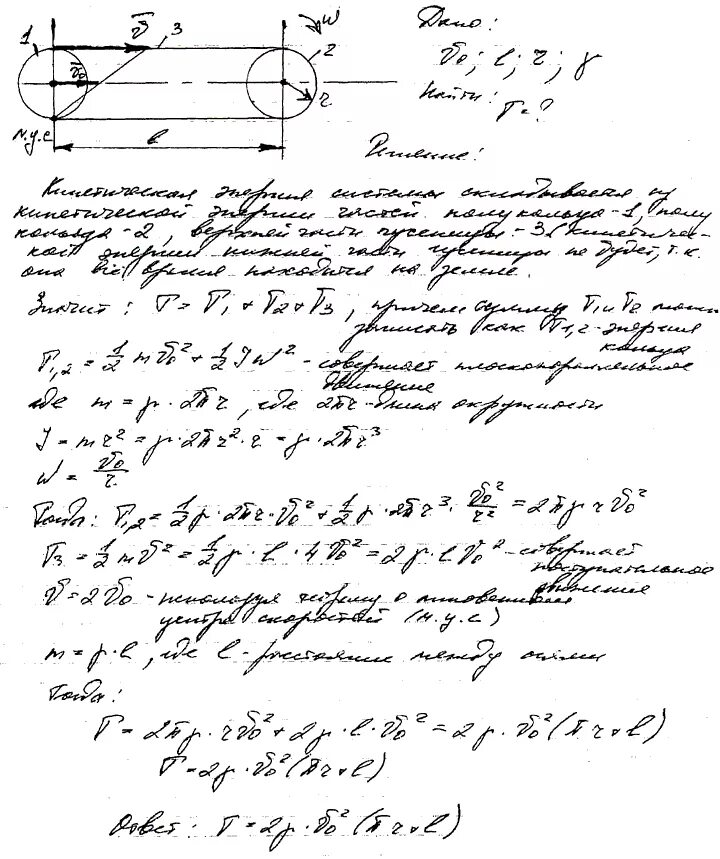 1 v̄ 3 ω 2
v̄₀ r
м.ц.с l
Дано:
v₀; l; r; γ
Найти:
T=?
Решение:
Кинетическая энергия системы складывается из
кинетической энергии частей полукольца-1, полу
кольца-2, верхней части гусеницы-3. Кинетичес-
кой энергии нижней части гусеницы не будет, т.к.
она всё время находится на земле.
Значит: T = T₁ + T₂ + T₃, причем сумму T₁ и T₂ можно
записать как T₁,₂ - энергия
кольца
T₁,₂ = 1/2 m v₀² + 1/2 J ω² - совершает плоскопараллельное
движение
где m = γ · 2πr, где 2πr - длина окружности
J = m r² = γ · 2πr² · r = γ · 2πr³
ω = v₀/r
Тогда: T₁,₂ = 1/2 γ · 2πr · v₀² + 1/2 γ · 2πr³ · v₀²/r² = 2πγ r v₀²
T₃ = 1/2 m v² = 1/2 γ · l · 4v₀² = 2γ l v₀² - совершает
поступательное
движение
v = 2v₀ - используя теорему о мгновенном
центре скоростей (м.ц.с)
m = γ · l, где l - расстояние между осями
Тогда:
T = 2πγ · r v₀² + 2γ · l · v₀² = 2γ · v₀² (πr + l)
T = 2γ · v₀² (πr + l)
Ответ: T = 2γ · v₀² (πr + l)